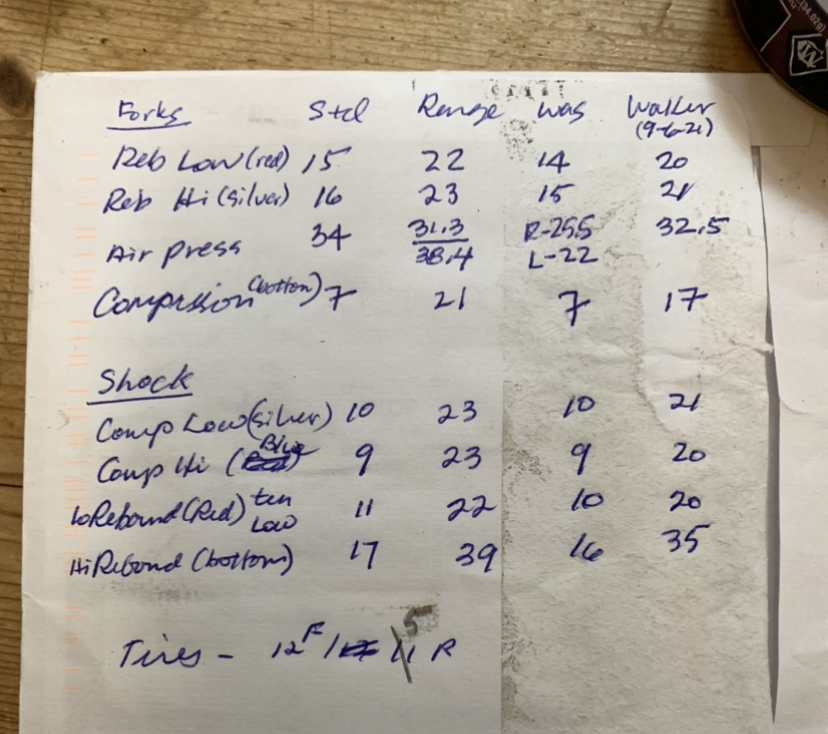 Forks Std Range was Walker
(9-6-21)
Reb Low (red) 15 22 14 20
Reb Hi (Silver) 16 23 15 21
Air Press 34 31.3 R-25.5 32.5
38.4 L-22
Compression (bottom) 7 21 7 17
Shock
Comp Low (Silver) 10 23 10 21
Comp Hi (Blue) 9 23 9 20
LoRebound (Red) 11 22 10 20
Low
HiRebound (bottom) 17 39 16 35
Tires - 12 F / 11 5 R